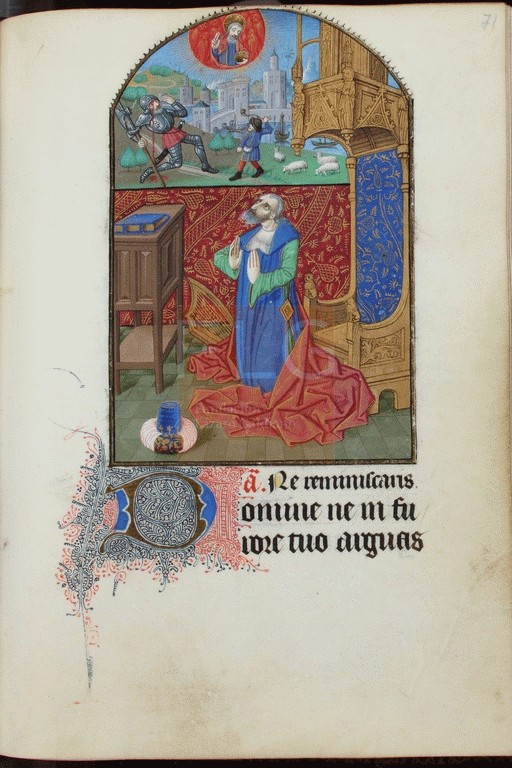 71
a͞. Ne reminiscaris
Domine ne in fu
rore tuo arguas